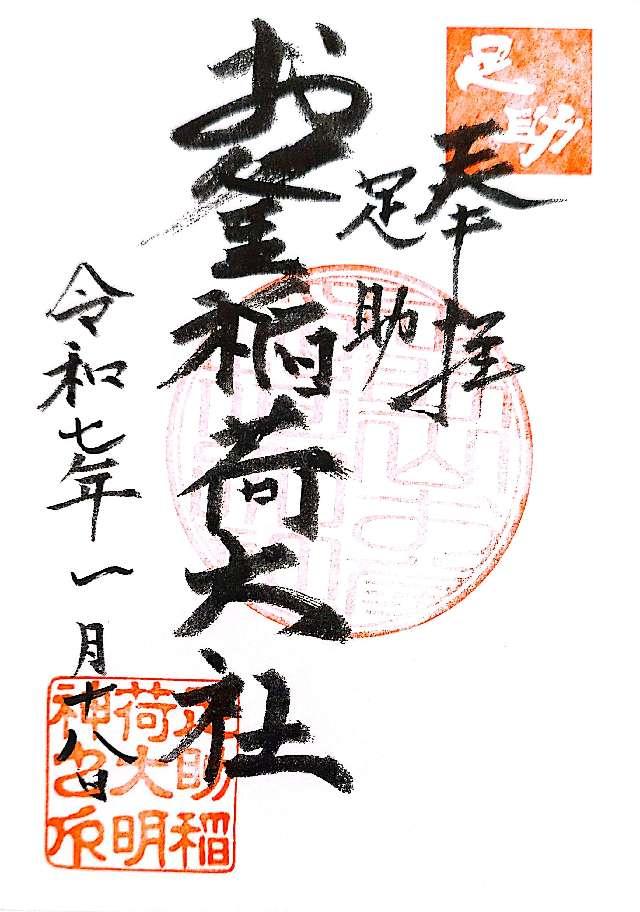 足助
奉拝
足助
お釜稲荷大社
令和七年一月十八日
足助稲
荷大明
神